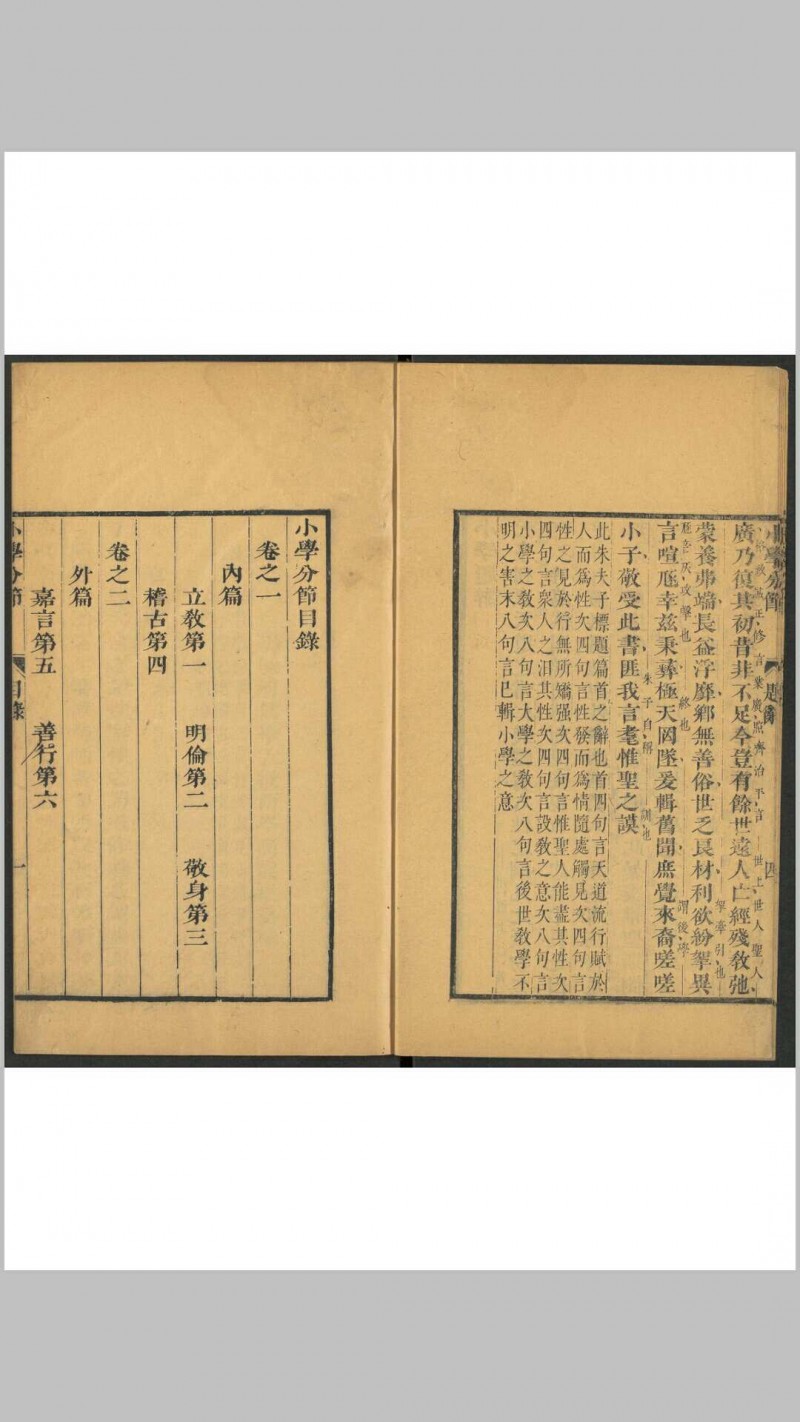 廣乃復其初昔非不足今豈有餘世遠人亡經殘敎弛
蒙養弗端長益浮靡鄉無善俗世乏良材利欲紛挐異
言喧豗幸玆秉彝極天罔墜爰輯舊聞庶覺來裔嗟嗟
小子敬受此書匪我言耄惟聖之謨
此朱夫子標題篇首之辭也首四句言天道流行賦於
人而爲性次四句言性發而爲情隨處觸見次四句言
性之見於行無所矯强次四句言惟聖人能盡其性次
四句言衆人之汨其性次四句言設敎之意次八句言
小學之敎次八句言大學之敎次八句言後世敎學不
明之害末八句言已輯小學之意
小學分節
題辭
四
小學分節目錄
卷之一
內篇
立敎第一 明倫第二 敬身第三
稽古第四
卷之二
外篇
嘉言第五 善行第六
小學分節
目錄
一